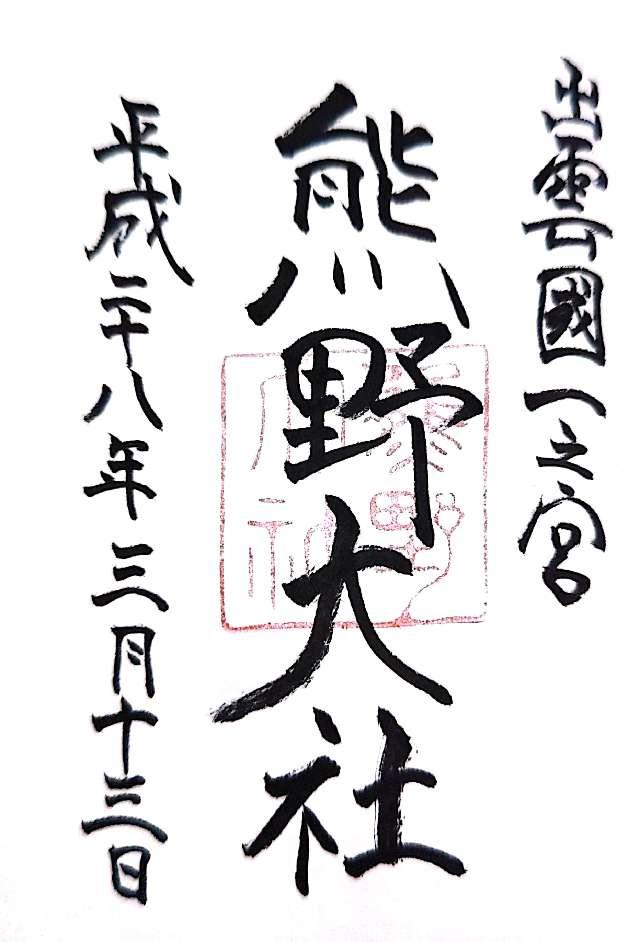 出雲國一之宮
熊野大社
平成二十八年三月十三日